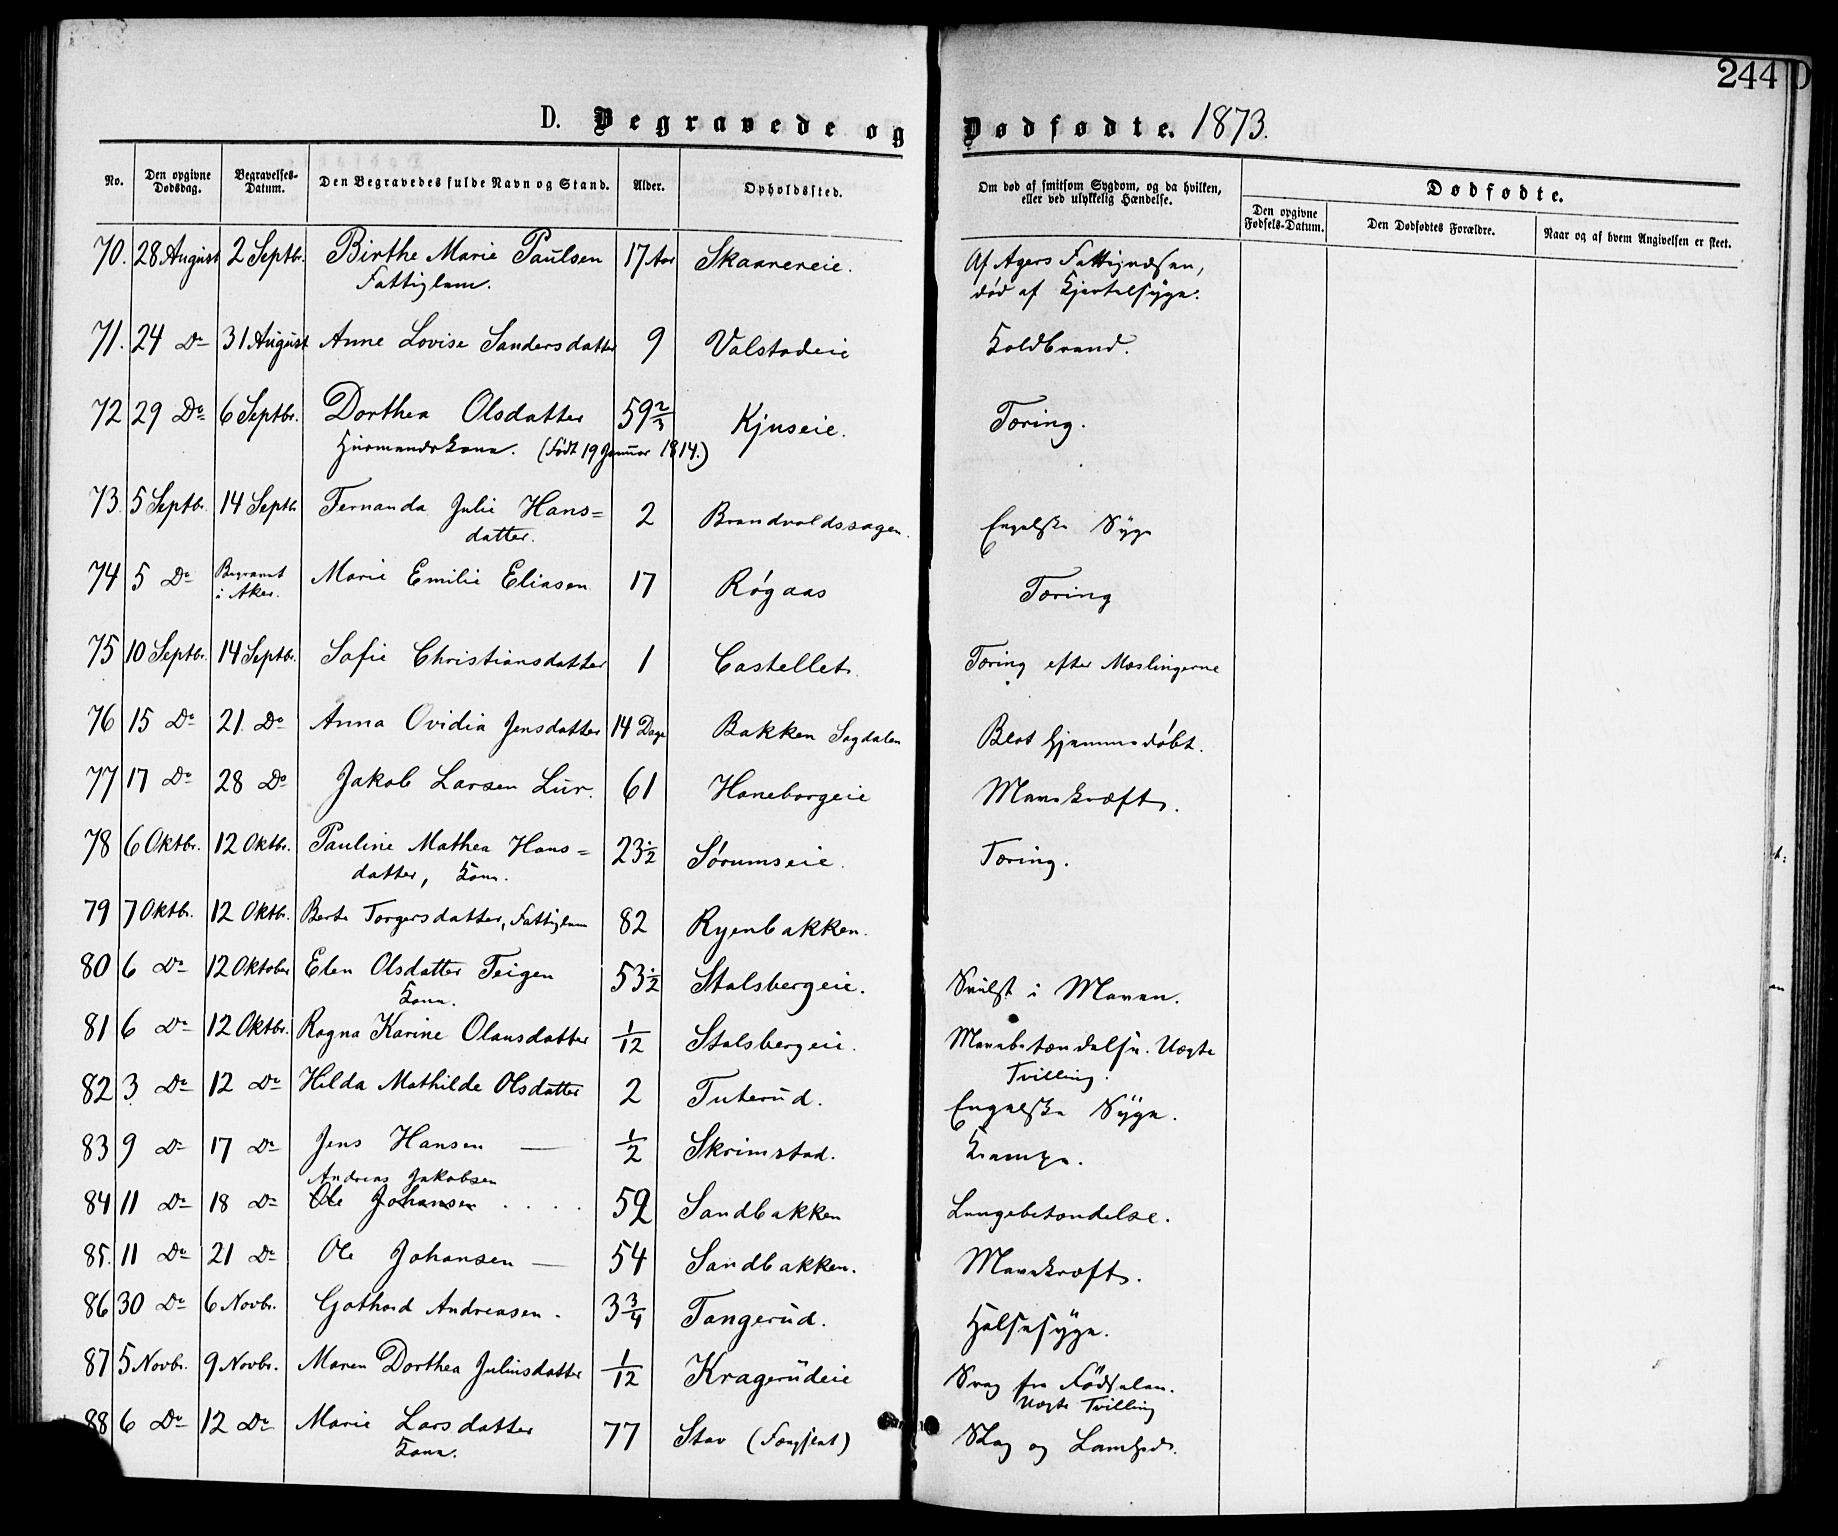 244 D
D. Begravede og Dødfødte. 1873.
No. Den opgivne Dødsdag. Begravelses-Datum. Den Begravedes fulde Navn og Stand. Alder. Opholdssted. Om død af smitsom Sygdom, og da hvilken, eller ved ulykkelig Hændelse. Dødfødte.
Den opgivne Fødsels-Datum. Den Dødfødtes Forældre. Naar og af hvem Angivelsen er skeet.
70. 28 August 2 Septbr. Birthe Marie Paulsen 17 Aar Skaarereie. Af Agers Fattigvæsen,
Fattiglem. død af Kjertelsyge.
71. 24 Do 31 August Anne Lovise Sandersdatter 9 Valstadeie Koldbrand.
72 29 Do 6 Septbr. Dorthea Olsdatter 59 2/3 Kjuseie. Tæring.
Husmandskone. (Født 19 Januar 1814.)
73. 5 Septbr. 14 Septbr. Fernanda Julie Hans=
datter. 2 Brandvoldssagen. Engelske Syge
74 5 Do Begravet i Aker. Marie Emilie Eliasen 17 Røgaas Tæring
75 10 Septbr. 14 Septbr. Sofie Christiansdatter 1 Castellet. Tæring efter Mæslingerne
76 15 Do 21 Do Anna Ovidia Jensdatter 14 Dage Bakken Sagdalen Blot hjemmedøbt.
77 17 Do 28 Do Jakob Larsen Lur. 61 Haneborgeie Mavekræft.
78 6 Oktbr. 12 Oktbr. Pauline Mathea Hans=
datter, Kone. 23 1/2 Sørumseie. Tæring.
79 7 Oktbr. 12 Oktbr. Berte Torgersdatter, Fattiglem 82 Ryenbakken.
80 6 Do 12 Oktober Elen Olsdatter Teigen 53 1/2 Stalsbergeie. Svulst i Maven.
Kone.
81 6 Do 12 Oktbr. Ragna Karine Olausdatter 1/12 Stalsbergeie. Mavebetændelse. Uægte
Tvilling.
82 3 Do 12 Do Hilda Mathilde Olsdatter 2 Tuterud. Engelske Syge.
83 9 Do 17 Do Jens Hansen 1/2 Skrimstad. Krampe.
Andreas Jakobsen
84 11 Do 18 Do Ole Johansen 59 Sandbakken Lungebetændelse.
85. 11 Do 21 Do Ole Johansen 54 Sandbakken. Mavekræft.
86 30 Do 6 Novbr. Gothard Andreasen 3 3/4 Tangerud. Halsesyge.
87 5 Novbr. 9 Novbr. Maren Dorthea Juliusdatter 1/12 Kragerudeie Svag fra Fødselen.
Uægte Tvilling
88 6 Do 12 Do Marie Larsdatter 77 Stav Slag og Lamhed.
Kone.